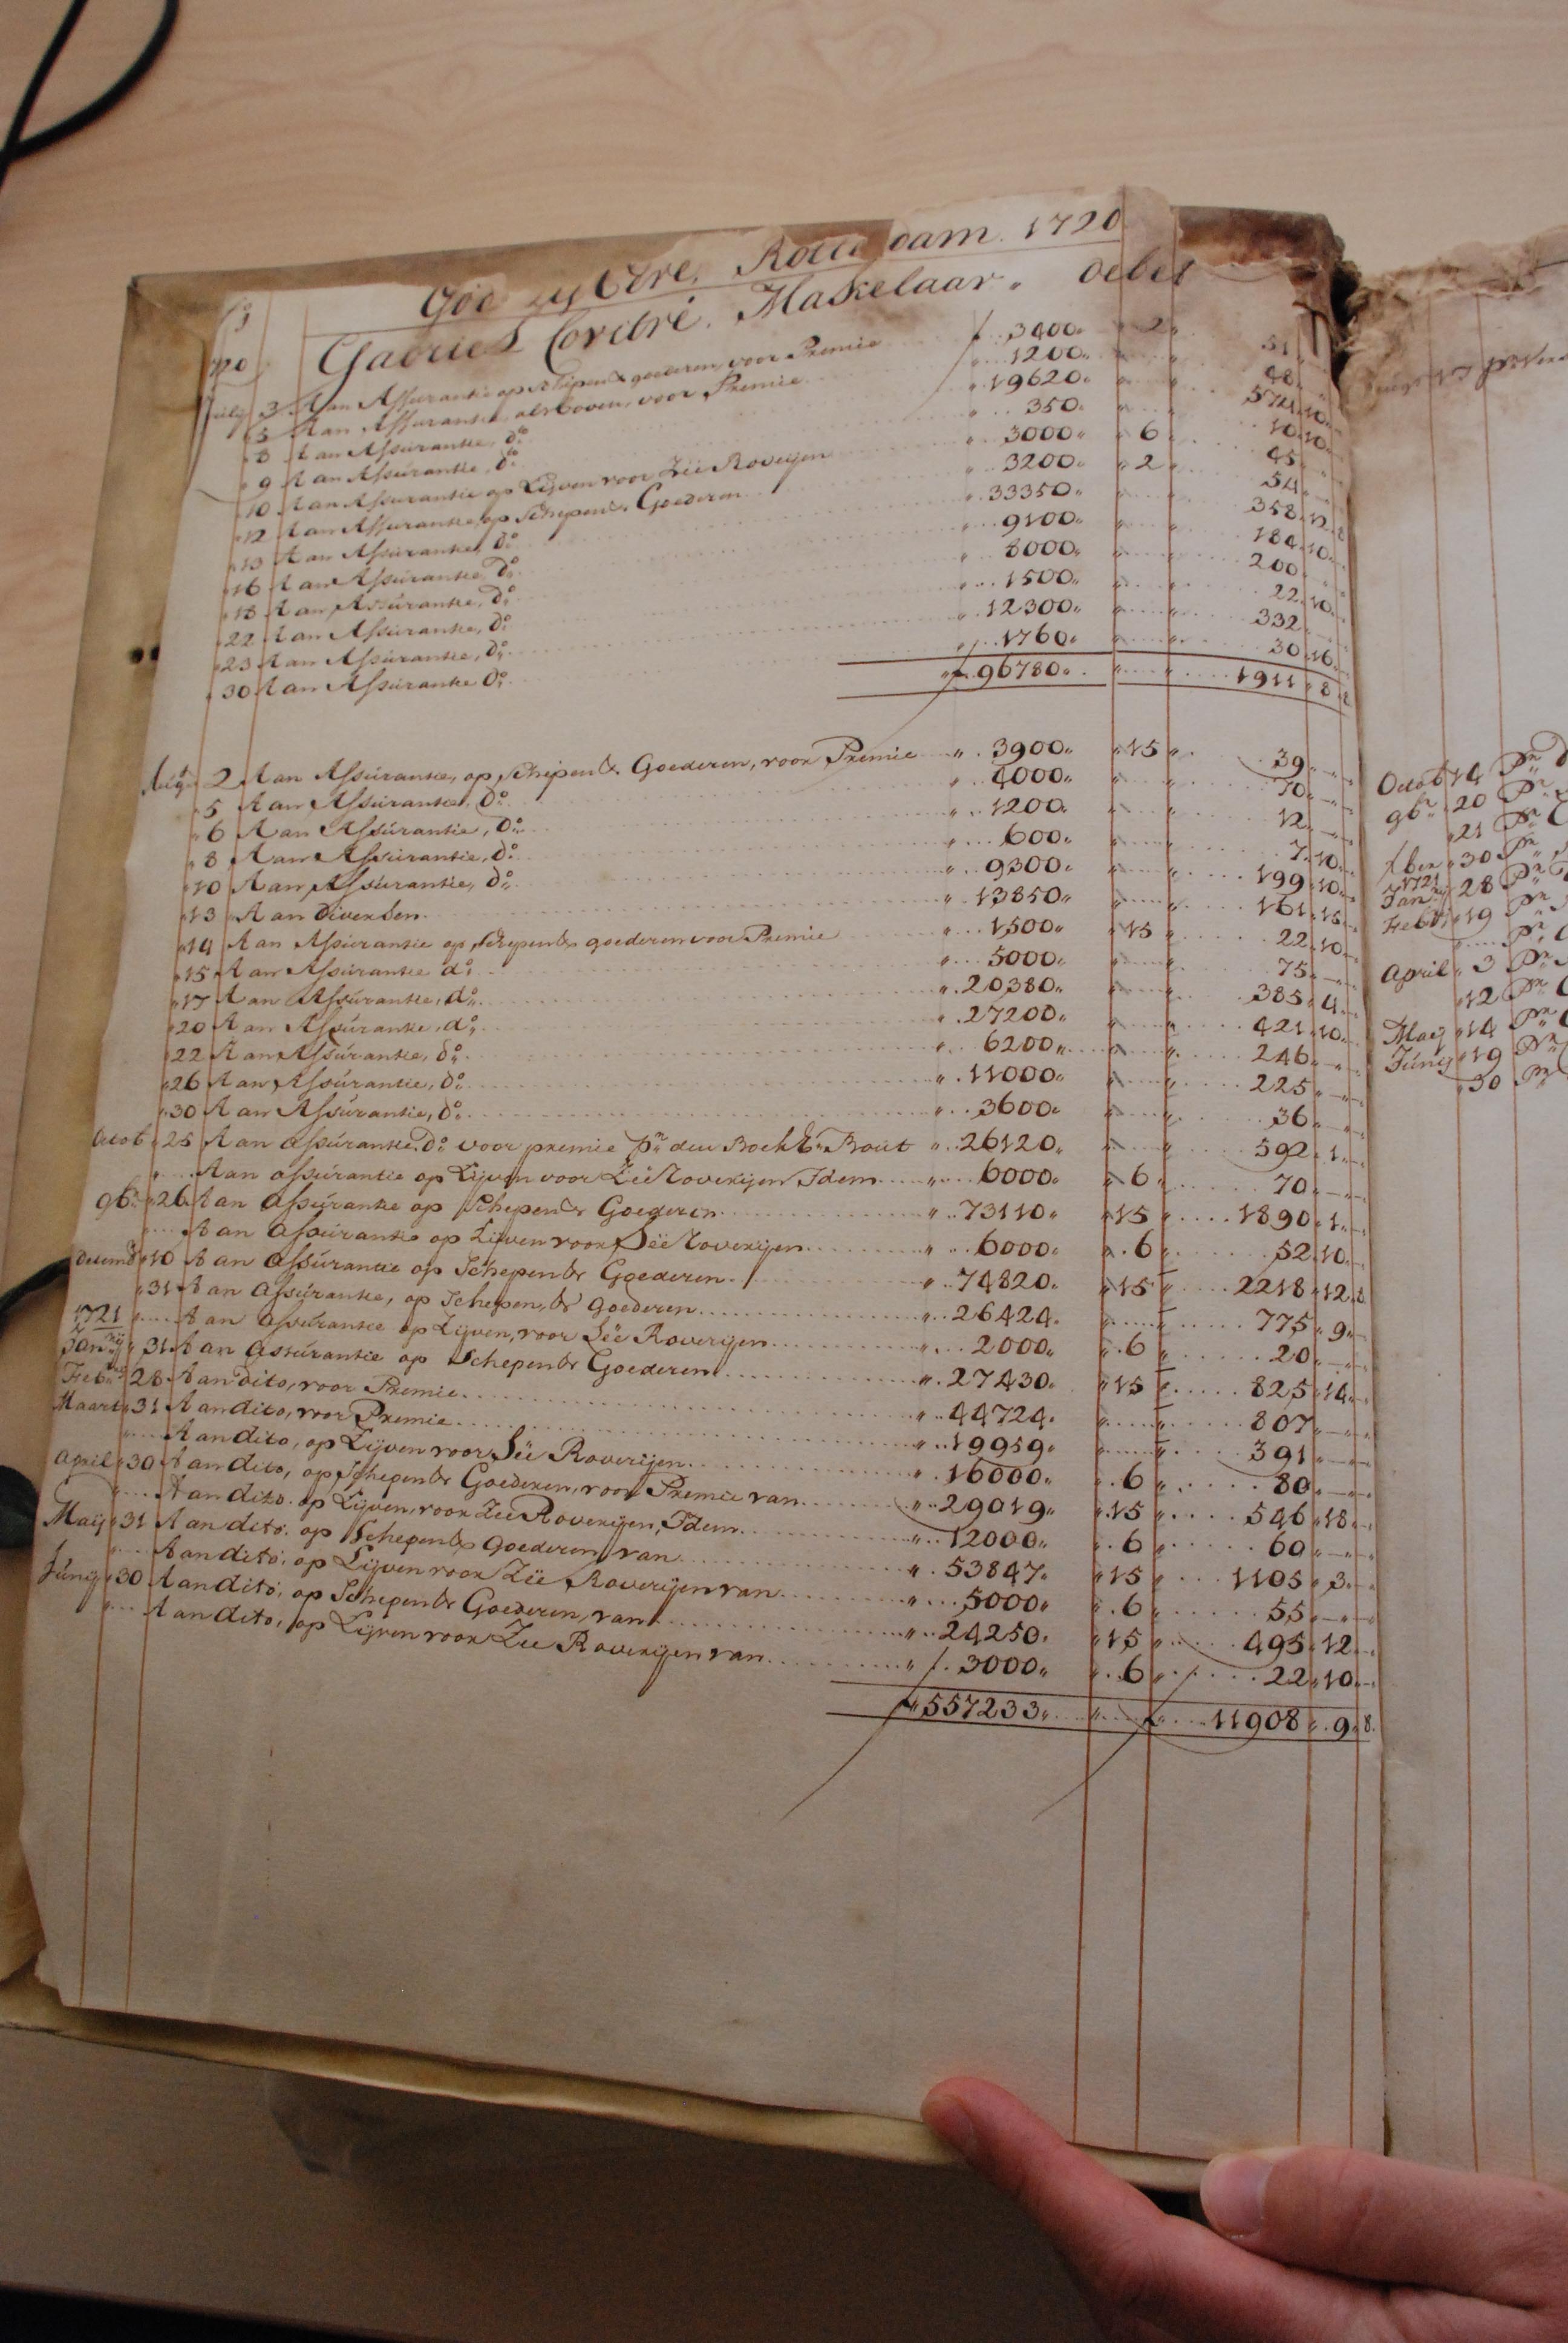 God zy Eere, Rotterdam. 1720
Gabriel Cordré. Makelaar. debet
July 3 Aan Assurantie op schepen & goederen, voor Premie f 3400 2 51
5 Aan Assurantie als boven, voor Premie 1200 48
8 Aan Assurantie, do 19620 574 10
9 Aan Assurantie, do 350 10 10
10 Aan Assurantie op Lijven voor Zëe Roverijen 3000 6 45
12 Aan Assurantie, op Schepen & Goederen 3200 2 54
13 Aan Assurantie, do 33350 358 12 8
16 Aan Assurantie, do 9100 184 10
18 Aan Assurantie, do 8000 200
22 Aan Assurantie, do 1500 22 10
23 Aan Assurantie, do 12300 332
30 Aan Assurantie do 1760 30 16
f 96780 1911 8 8
Aug 2 Aan Assurantie, op schepen & Goederen, voor Premie 3900 15 39
5 Aan Assurantie, do 4000 70
6 Aan Assurantie, do 1200 12
8 Aan Assurantie, do 600 7 10
10 Aan Assurantie, do 9300 199 10
13 Aan diversen 13850 161 15
14 Aan Assurantie op schepen & goederen voor Premie 1500 15 22 10
15 Aan Assurantie do 5000 75
17 Aan Assurantie, do 20380 385 4
20 Aan Assurantie, do 27200 421 10
22 Aan Assurantie, do 6200 246
26 Aan Assurantie, do 11000 225
30 Aan Assurantie, do 3600 36
Octob 25 Aan assurantie do voor premie pr den Boek 26120 592 1
Aan assurantie op Lijven voor Zëe Roverijen Idem 6000 6 70
9br 26 Aan assurantie op Schepen & Goederen 73110 15 1890 1
Aan assurantie op Lijven voor Sëe Roverijen 6000 6 52 10
decemb 10 Aan assurantie op Schepen & Goederen 74820 15 2218 12 8
31 Aan assurantie, op schepen, & goederen 26424 775 9
1721 Aan assurantie op Lijven, voor Sëe Roverijen 2000 6 20
Janry 31 Aan assurantie op Schepen & Goederen 27430 15 825 14
Febr 28 Aan dito, voor Premie 44724 807
Maart 31 Aan dito, voor Premie 19959 391
Aan dito, op Lijven voor Sëe Roverijen 16000 6 80
April 30 Aan dito, op Schepen & Goederen, voor Premie van 29019 15 546 18
Aan dito. op Lijven, voor Zëe Roverijen, Idem 12000 6 60
Maij 31 Aan dito. op Schepen & Goederen, van 53847 15 1105 3
Aan dito, op Lijven voor Zëe Roverijen van 5000 6 55
Junij 30 Aan dito, op Schepen & Goederen, van 24250 15 495 12
Aan dito, op Lijven voor Zëe Roverijen van 3000 6 22 10
f 557233 f 11908 9 8
Octob 14 Pr
9br 20 Pr
21 Pr
30 Pr
1721
Jan 28 Pr
Feb 19 Pr
Pr
April 3 Pr
12 Pr
Maij 14 Pr
Junij 19 Pr
30 Pr